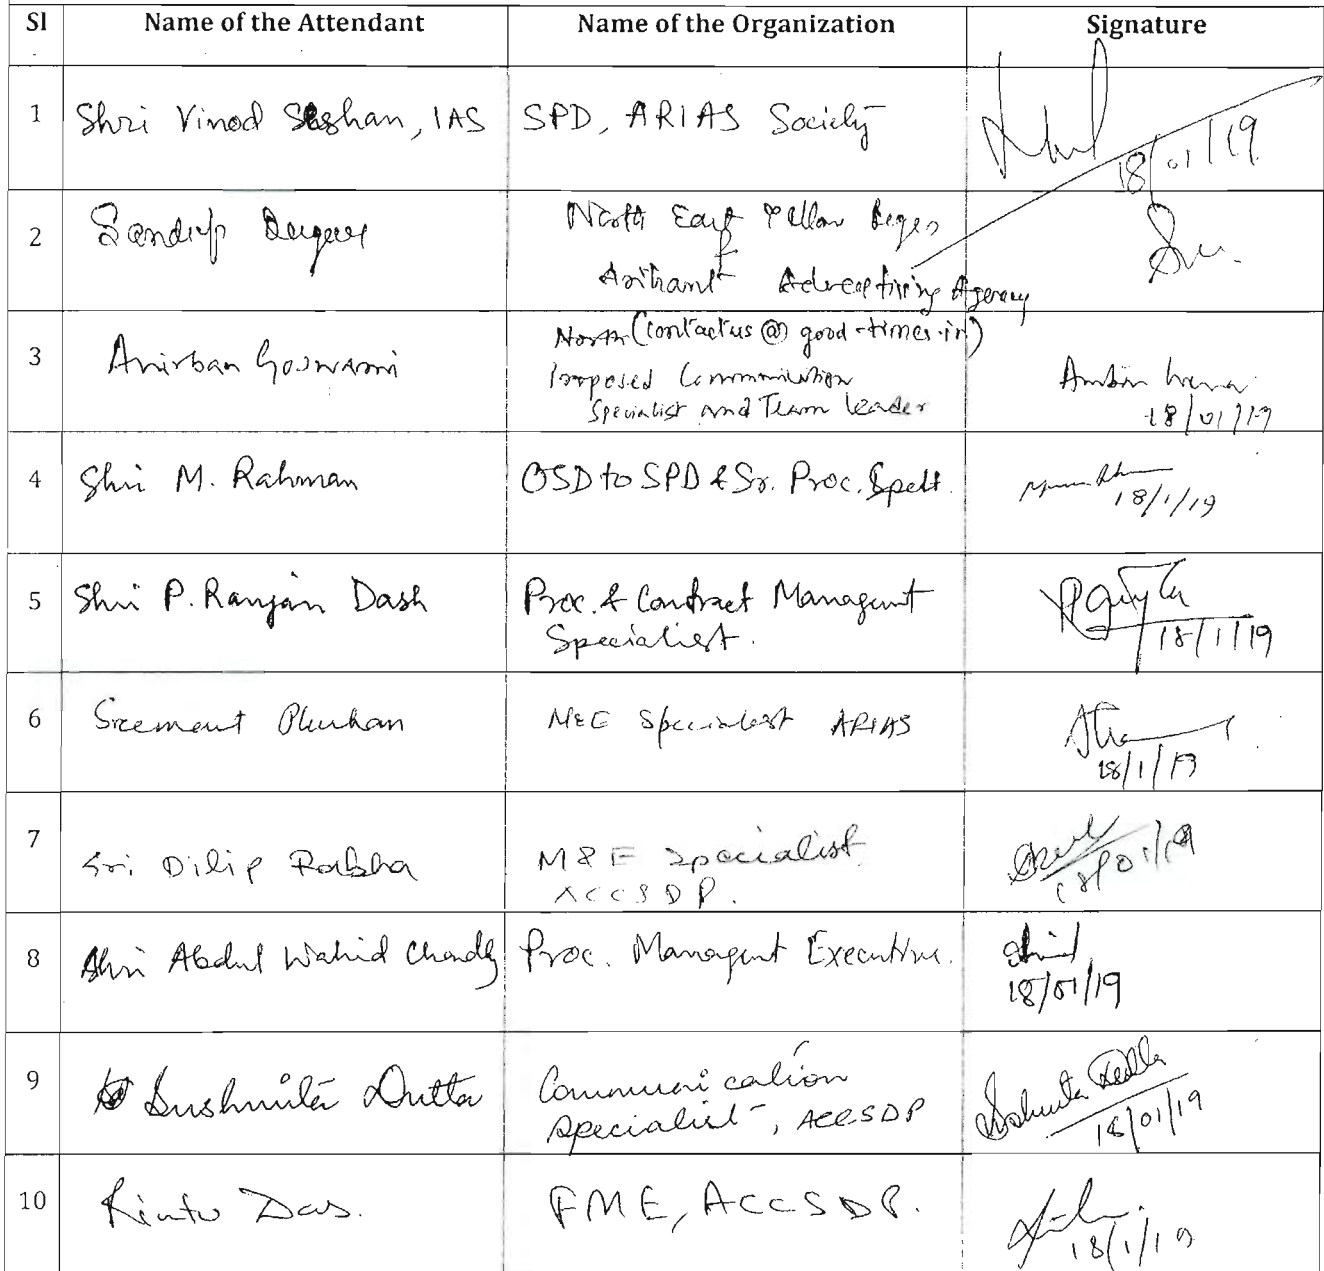 Sl Name of the Attendant Name of the Organization Signature
1 Shri Vinod Seshan, IAS SPD, ARIAS Society
18/01/19
2 Sandeep North East Yellow Pages
&
Arihant Advertising Agency
3 Anirban Goswami North (contactus@good-times.in)
Proposed Communication
Specialist and Team leader
18/01/19
4 Shri M. Rahman OSD to SPD & Sr. Proc. Spclt.
18/1/19
5 Shri P. Ranjan Dash Proc. & Contract Managemnt
Specialist.
18/1/19
6 Sreemant Phukan M&E Specialist ARIAS
18/1/19
7 Sri Dilip Rabha M&E Specialist
ACCSDP.
18/01/19
8 Shri Abdul Wahid Choudhy Proc. Managemnt Executive.
18/01/19
9 Sushmita Dutta Communication
Specialist, ACCSDP
Sushmita Dutta
18/01/19
10 Rintu Das. FME, ACCSDP.
18/1/19